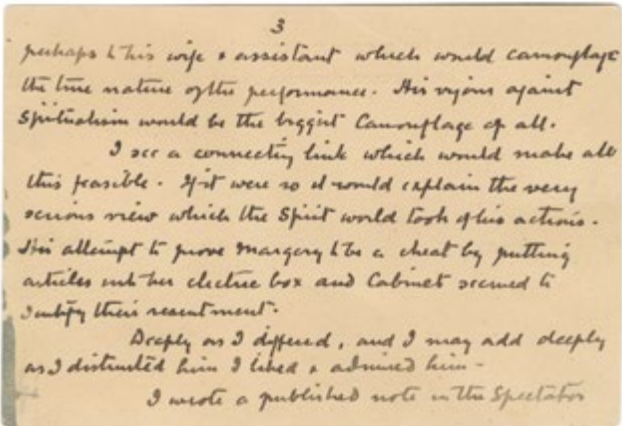 3
perhaps to his wife & assistant which would camouflage
the true nature of the performance. His against
Spiritualism would be the biggest Camouflage of all.
I see a connecting link which would make all
this feasible. If it were so it would explain the very
serious view which the Spirit world took of his actions.
His attempt to prove Margery to be a cheat by putting
articles into her electric box and Cabinet seemed to
justify their resentment.
Deeply as I differed, and I may add deeply
as I distrusted him I liked & admired him -
I wrote a published note in the Spectator